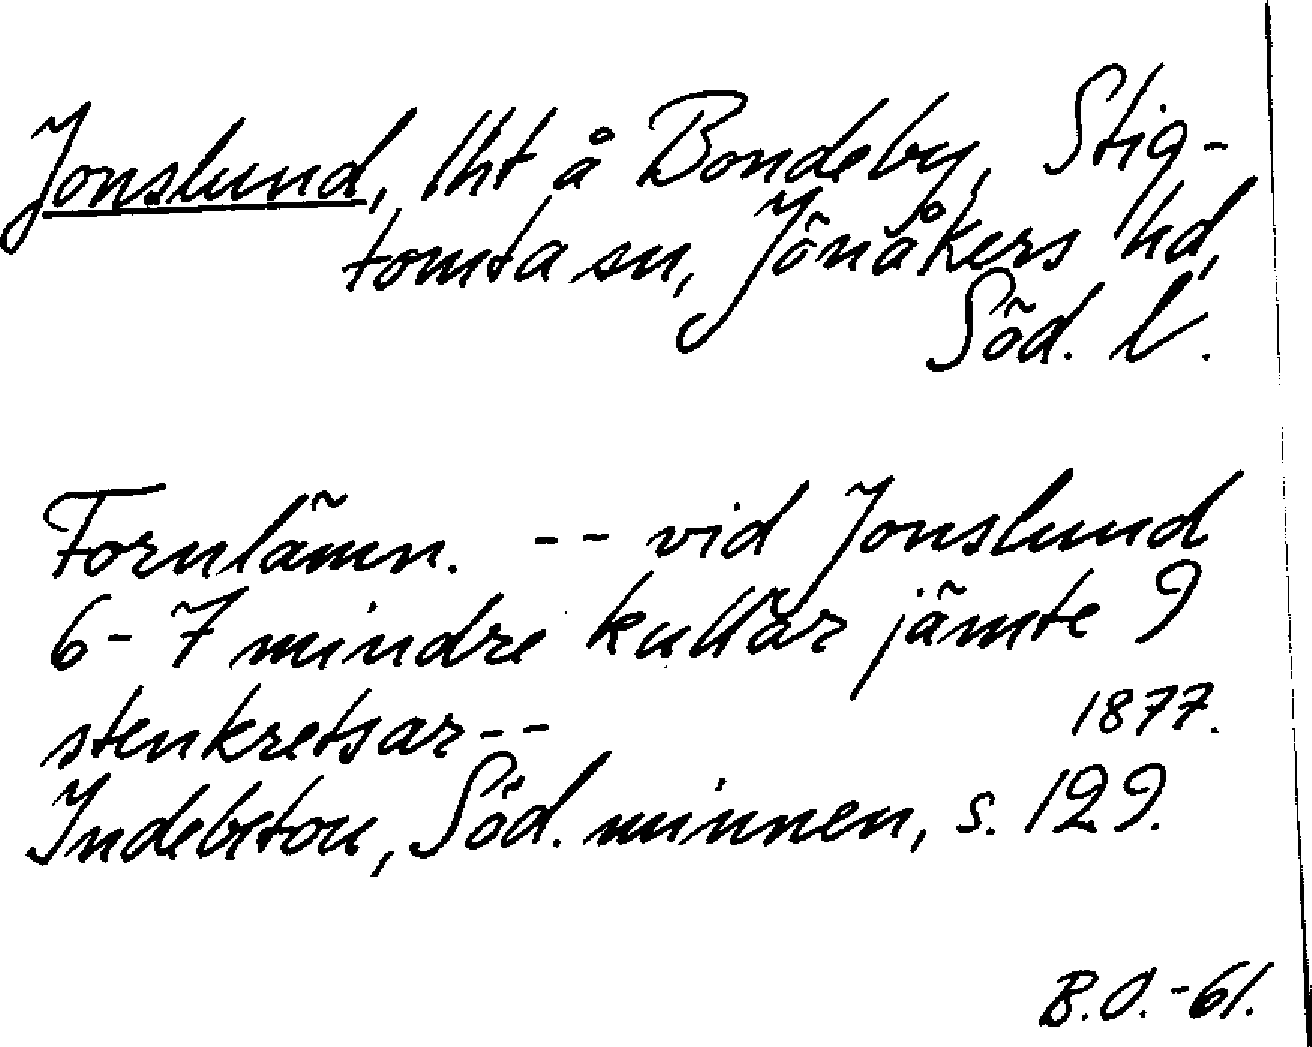 Jonslund, lht å Bondeby, Stig-
tomta sn, Jönåkers hd,
Söd. l.
Fornlämn. -- vid Jonslund
6-7 mindre kullar jämte 9
stenkretsar --
1877.
Indebetou, Söd. minnen, s. 129.
B.O.-61.